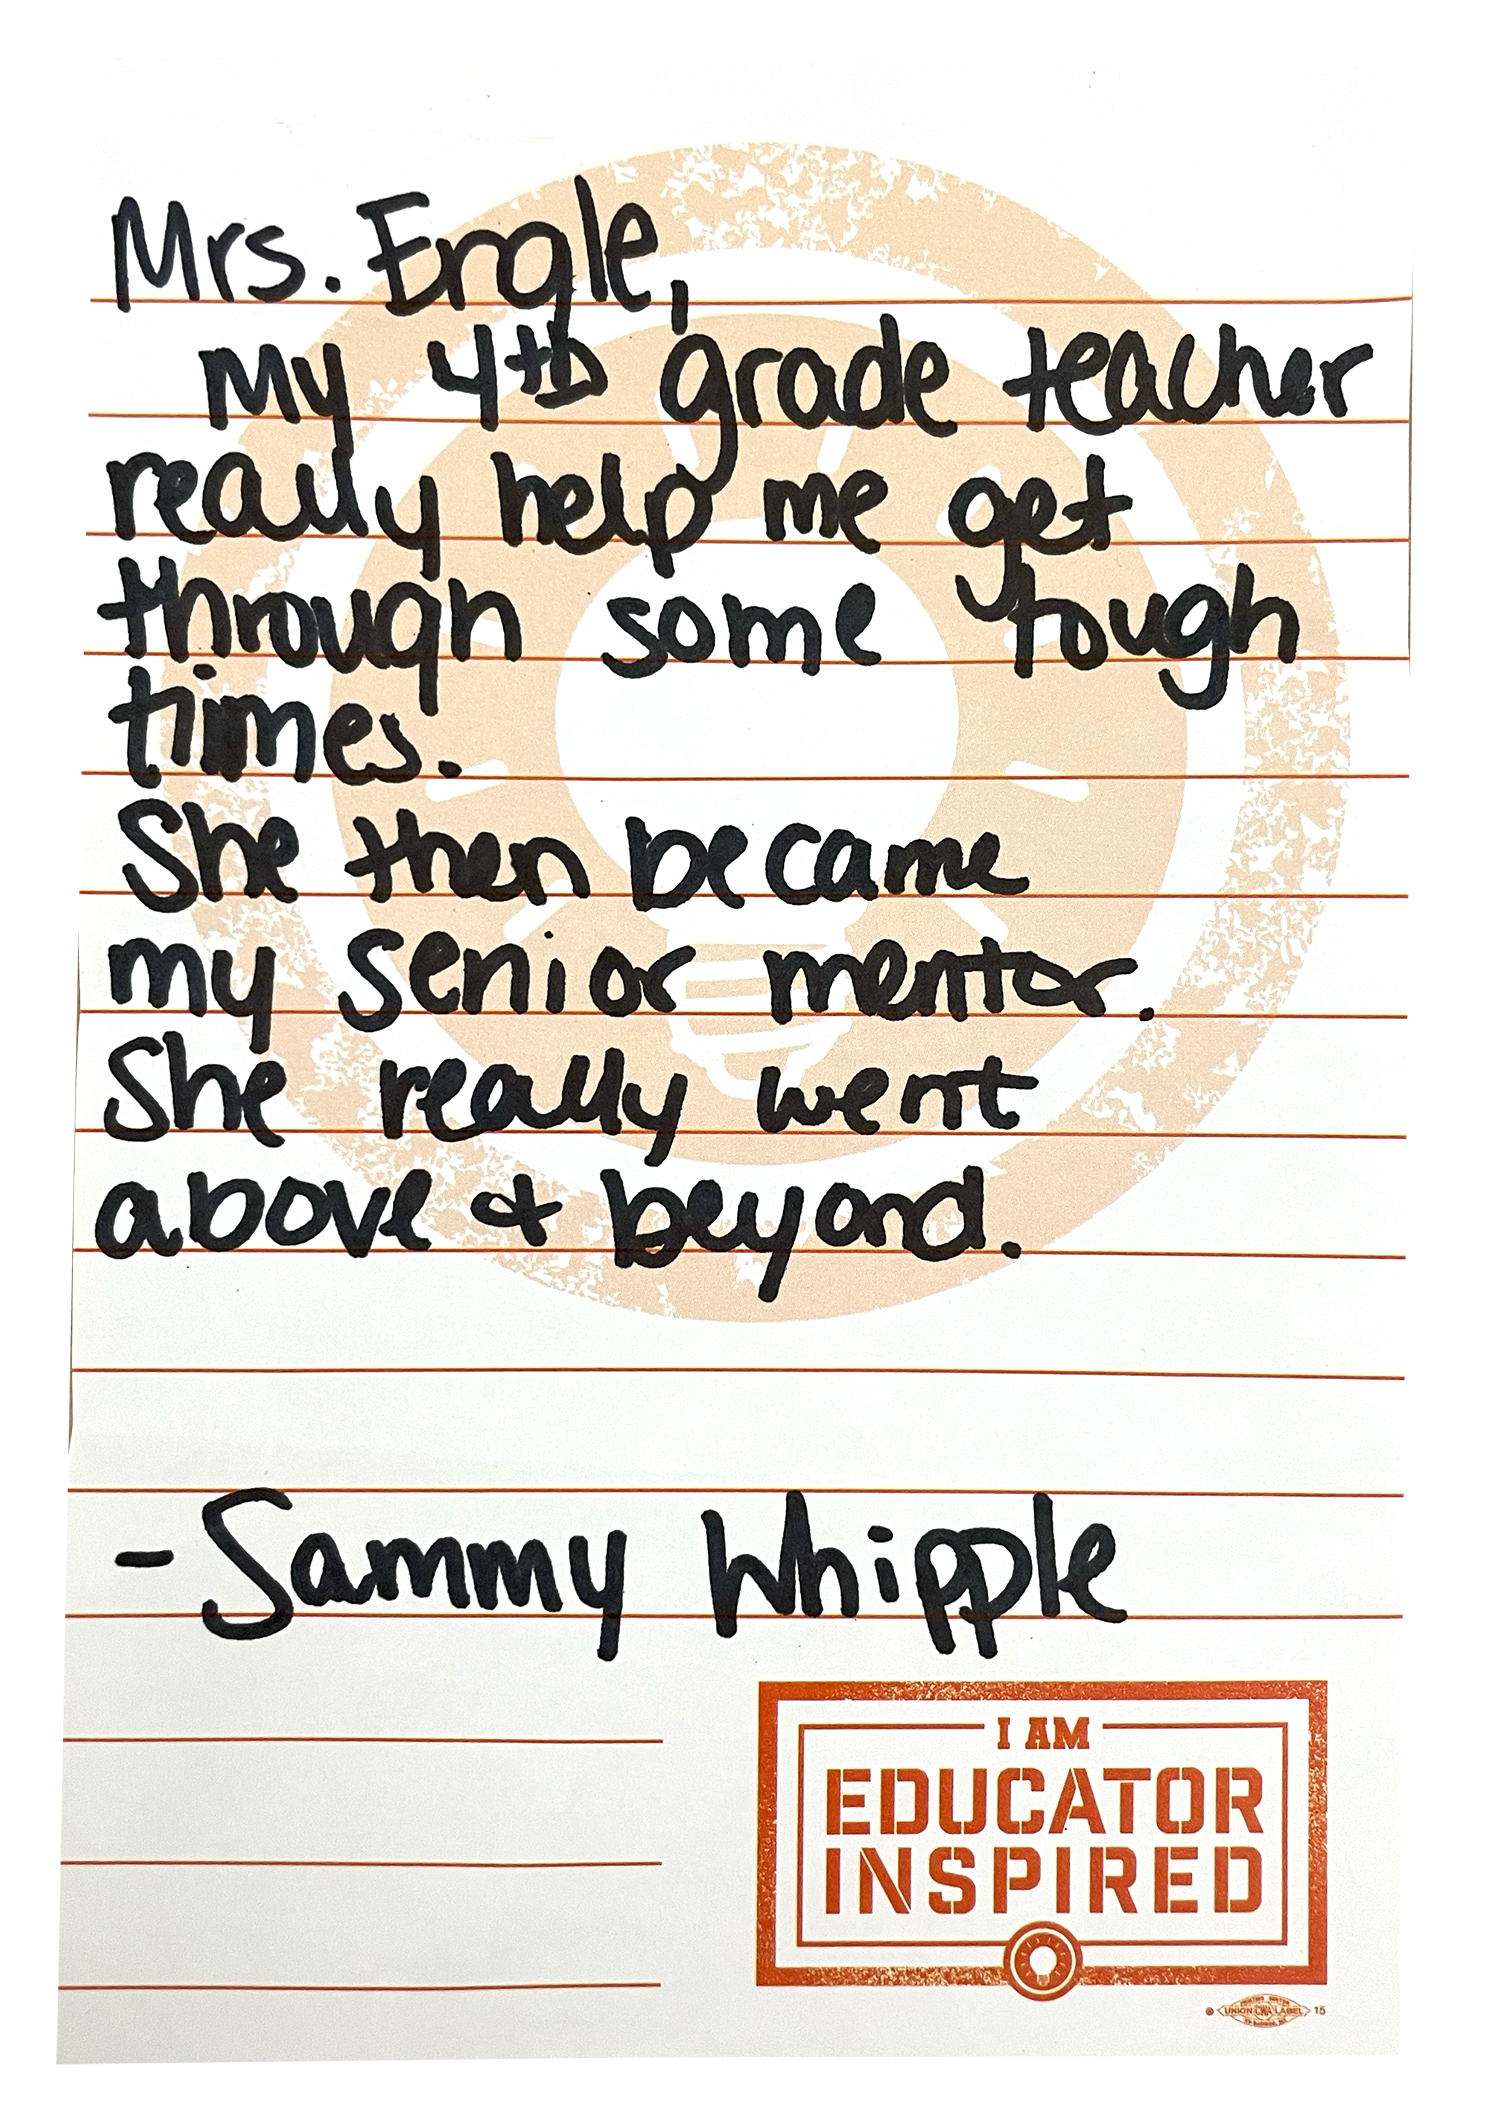 Mrs. Engle,
My 4th grade teacher
really help me get
through some tough
times.
She then became
my senior mentor.
She really went
above & beyond.
-Sammy Whipple
I AM
EDUCATOR
INSPIRED
UNION CWA LABEL 15